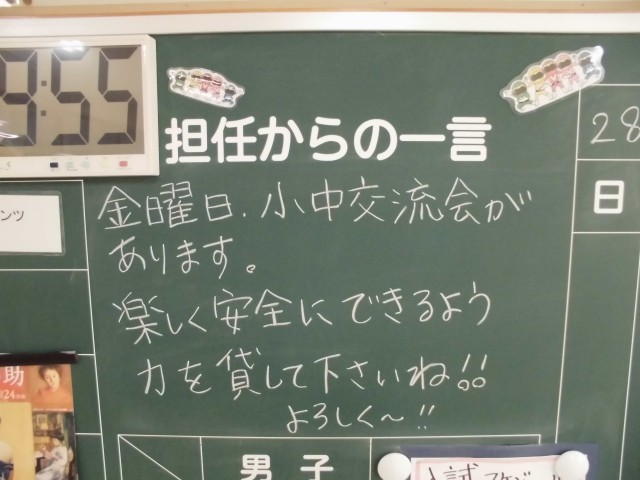 9:55
担任からの一言
28
金曜日.小中交流会が
あります。
日
ンツ
楽しく安全にできるよう
力を貸して下さいね!!
よろしく〜!!
助
男子
入試スケジュール